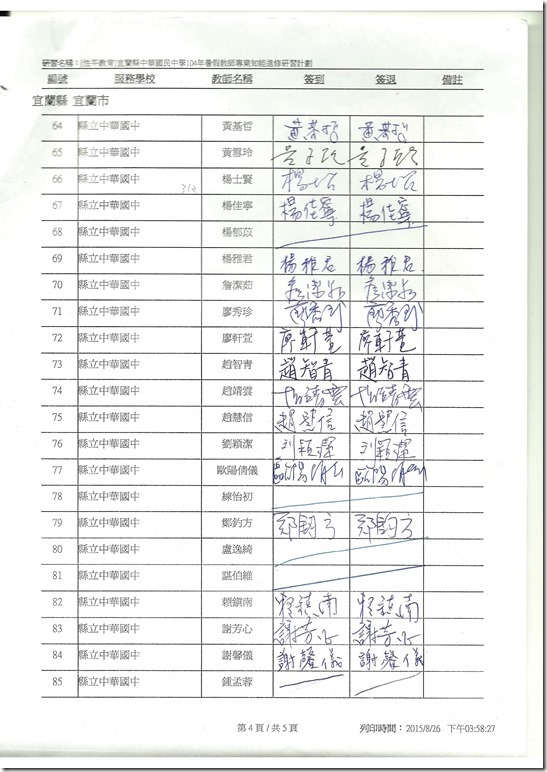 研習名稱：[性平教育]宜蘭縣中華國民中學104年暑假教師專業知能進修研習計劃
編號 服務學校 教師名稱 簽到 簽退 備註
宜蘭縣 宜蘭市
64 縣立中華國中 黃基哲 黃基哲 黃基哲
65 縣立中華國中 黃雪玲
66 縣立中華國中 楊士賢
67 縣立中華國中 楊佳寧 楊佳寧 楊佳寧
68 縣立中華國中 楊郁苡
69 縣立中華國中 楊雅君 楊雅君 楊雅君
70 縣立中華國中 詹潔茹
71 縣立中華國中 廖秀珍
72 縣立中華國中 廖軒萱 廖軒萱 廖軒萱
73 縣立中華國中 趙智青 趙智青 趙智青
74 縣立中華國中 趙靖雲
75 縣立中華國中 趙慧信 趙慧信 趙慧信
76 縣立中華國中 劉穎潔
77 縣立中華國中 歐陽倩儀
78 縣立中華國中 練怡初
79 縣立中華國中 鄭鈞方 鄭鈞方 鄭鈞方
80 縣立中華國中 盧逸綺
81 縣立中華國中 諶伯維
82 縣立中華國中 賴鎮南 賴鎮南 賴鎮南
83 縣立中華國中 謝芳心 謝芳心 謝芳心
84 縣立中華國中 謝馨儀 謝馨儀 謝馨儀
85 縣立中華國中 鍾孟蓉
第 4 頁 / 共 5 頁 列印時間：2015/8/26 下午03:58:27